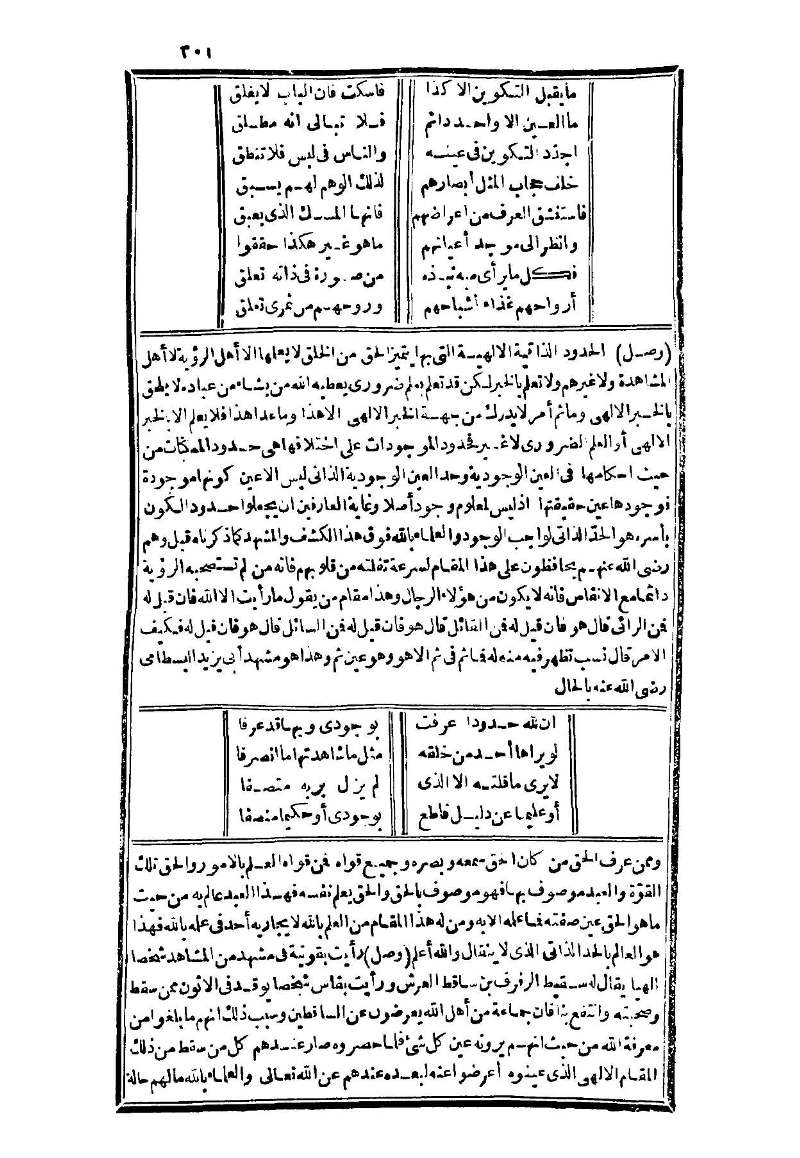 ٣٠١
مايقبل التكوين الا كذا فاسكت فان الباب لايغلق
ما العين الا واحد دائم فلا تبالى انه مطلق
اجدد التكوين فى عينه والناس فى لبس فلا تنطق
خلف حجاب المثل أبصارهم لذلك الوهم لهم يسبق
فاستنشق العرف من اعراضهم فانها المسك الذى يعبق
وانظر الى موجد أعيانهم ماهو غير هكذا حققوا
فكل مايرأى به من صورة فى ذاته تعلق
أرواحهم غذاء أشباحهم وروحهم من تعلق
(وصل) الحدود الذاتية الالهية التى بها يتميز الحق من الخلق لايعلمها الا أهل الرؤية لا أهل
المشاهدة ولا غيرهم ولا تعلم بالخبر لكن قد تعلم بعلم ضرورى يعطيه الله من يشاء من عباده لا يلحق
بالخبر الالهى وما ثم أمر لايدرك من جهة الخبر الالهى الا هذا وما عدا هذا فلا يعلم الا بالخبر
الالهى أو العلم الضرورى لاغير فحدود الموجودات على اختلافها هى حدود الممكنات من
حيث احكامها فى العين الوجودية وحد العين الوجودية الذاتى ليس الا عين كونها موجودة
فوجودها عين حقيقتها اذ ليس لمعلوم وجود أصلا وغاية العارفين ان يجعلوا حدود الكون
بأسره هو الحد الذاتى لواجب الوجود والعلماء بالله فوق هذا الكشف والمشهد كما ذكرناه قبل وهم
رضى الله عنهم يحافظون على هذا المقام لسرعة تفلته من قلوبهم فانه من لم تستصحبه الرؤية
دائما مع الانفاس فانه لا يكون من هؤلاء الرجال وهذا مقام من يقول ما رأيت الا الله فان قيل له
فمن الرائى قال هو فان قيل له فمن القائل قال هو فان قيل له فمن السائل قال هو فان قيل له فكيف
الامر قال نسب تظهر فيه منه له فما ثم فى ثم الا هو وهو عين ثم وهذا هو مشهد أبى يزيد البسطامى
رضى الله عنه بالحال
ان لله حدودا عرفت بوجودى وبها قد عرفا
لو يراها أحد من خلقه مثل ما شاهدتها ما انصرفا
لايرى ما قلته الا الذى لم يزل بربه متصفا
أو عليما عن دليل قاطع بوجودى أو حكيما منصفا
وممن عرف الحق من كان الحق سمعه وبصره وجميع قواه فمن قواه العلم بالامور والحق تلك
القوة والعبد موصوف بها فهو موصوف بالحق والحق يعلم نفسه فهذا العبد عالم به من حيث
ما هو الحق عين صفته فما علمه الا به ومن له هذا المقام من العلم بالله لا يجاريه أحد فى علمه بالله فهذا
هو العالم بالحد الذاتى الذى لا ينقال والله أعلم (وصل) رأيت بقونية فى مشهد من المشاهد شخصا
الهيا يقال له سقيط الرفرف بن ساقط العرش ورأيت بفاس شخصا يوقد فى الاتون ممن سقط
وصحبته وانتفع بنا فان جماعة من أهل الله يعرضون عن الساقطين وسبب ذلك انهم ما بلغوا من
معرفة الله من حيث انهم يرونه عين كل شئ فلما حصروه صار عندهم كل من سقط من ذلك
المقام الالهى الذى عينوه أعرضوا عنه لبعده عندهم عن الله تعالى والعلماء بالله مالهم حالة